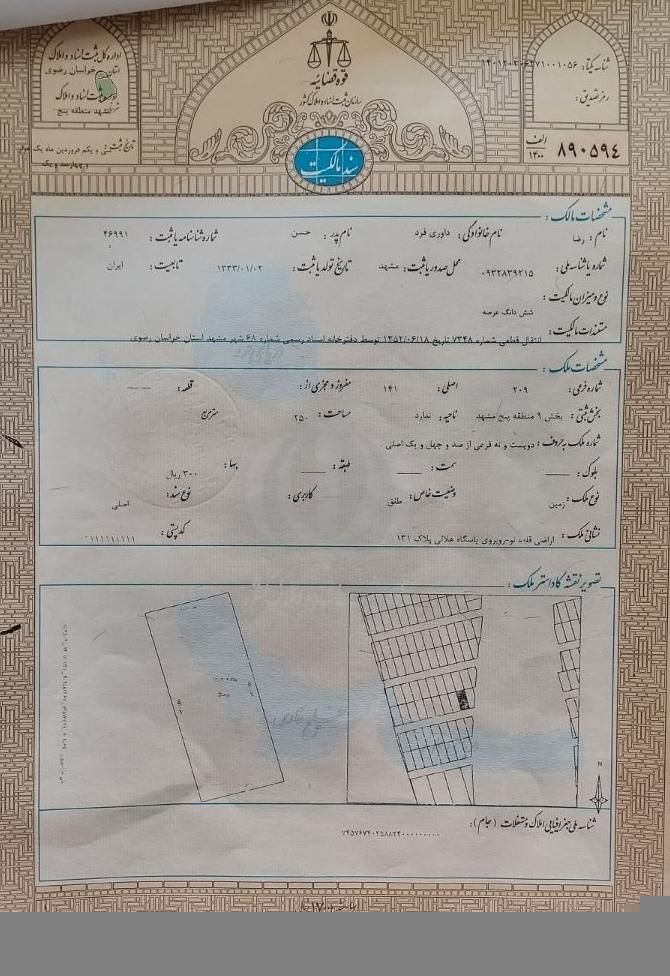 قوه قضائیه
سازمان ثبت اسناد و املاک کشور
اداره کل ثبت اسناد و املاک
استان خراسان رضوی
مشهد منطقه پنج
شناسه یکتا:
رمز تصدیق:
۸۹۰۵۹۴ الف ۱۴۰۰
سند مالکیت
مشخصات مالک:
نام: رضا نام خانوادگی: داوری فرد نام پدر: حسن شماره شناسنامه یا ثبت: ۴۶۹۹۱
شماره یا شناسه ملی: ۰۹۳۲۸۳۹۲۱۵ محل صدور یا ثبت: مشهد تاریخ تولد یا ثبت: ۱۳۳۳/۰۱/۰۲ تابعیت: ایران
نوع و میزان مالکیت:
شش دانگ عرصه
مستندات مالکیت:
انتقال قطعی شماره ۷۳۴۸ تاریخ ۱۳۵۲/۰۶/۱۸ توسط دفترخانه اسناد رسمی شماره ۶۸ شهر مشهد استان خراسان رضوی
مشخصات ملک:
شماره فرعی: ۲۰۹ اصلی: ۱۴۱ مفروز و مجزی از: قطعه:
بخش ثبتی: بخش ۹ منطقه پنج مشهد ناحیه: ندارد مساحت: ۲۵۰ مترمربع
شماره ملک به حروف: دویست و نه فرعی از صد و چهل و یک اصلی
بلوک: سمت: طبقه: بها: ۳۰۰ ریال
نوع ملک: زمین وضعیت خاص: طلق کاربری: نوع سند: اصلی
نشانی ملک: اراضی قلعه نو-روبروی پاسگاه هلالی پلاک ۱۳۱ کد پستی: ۰۱۱۱۱۱۱۱۱۱
تصویر نقشه کاداستر ملک:
N
شناسه ملی جغرافیایی املاک و مستغلات (جام):